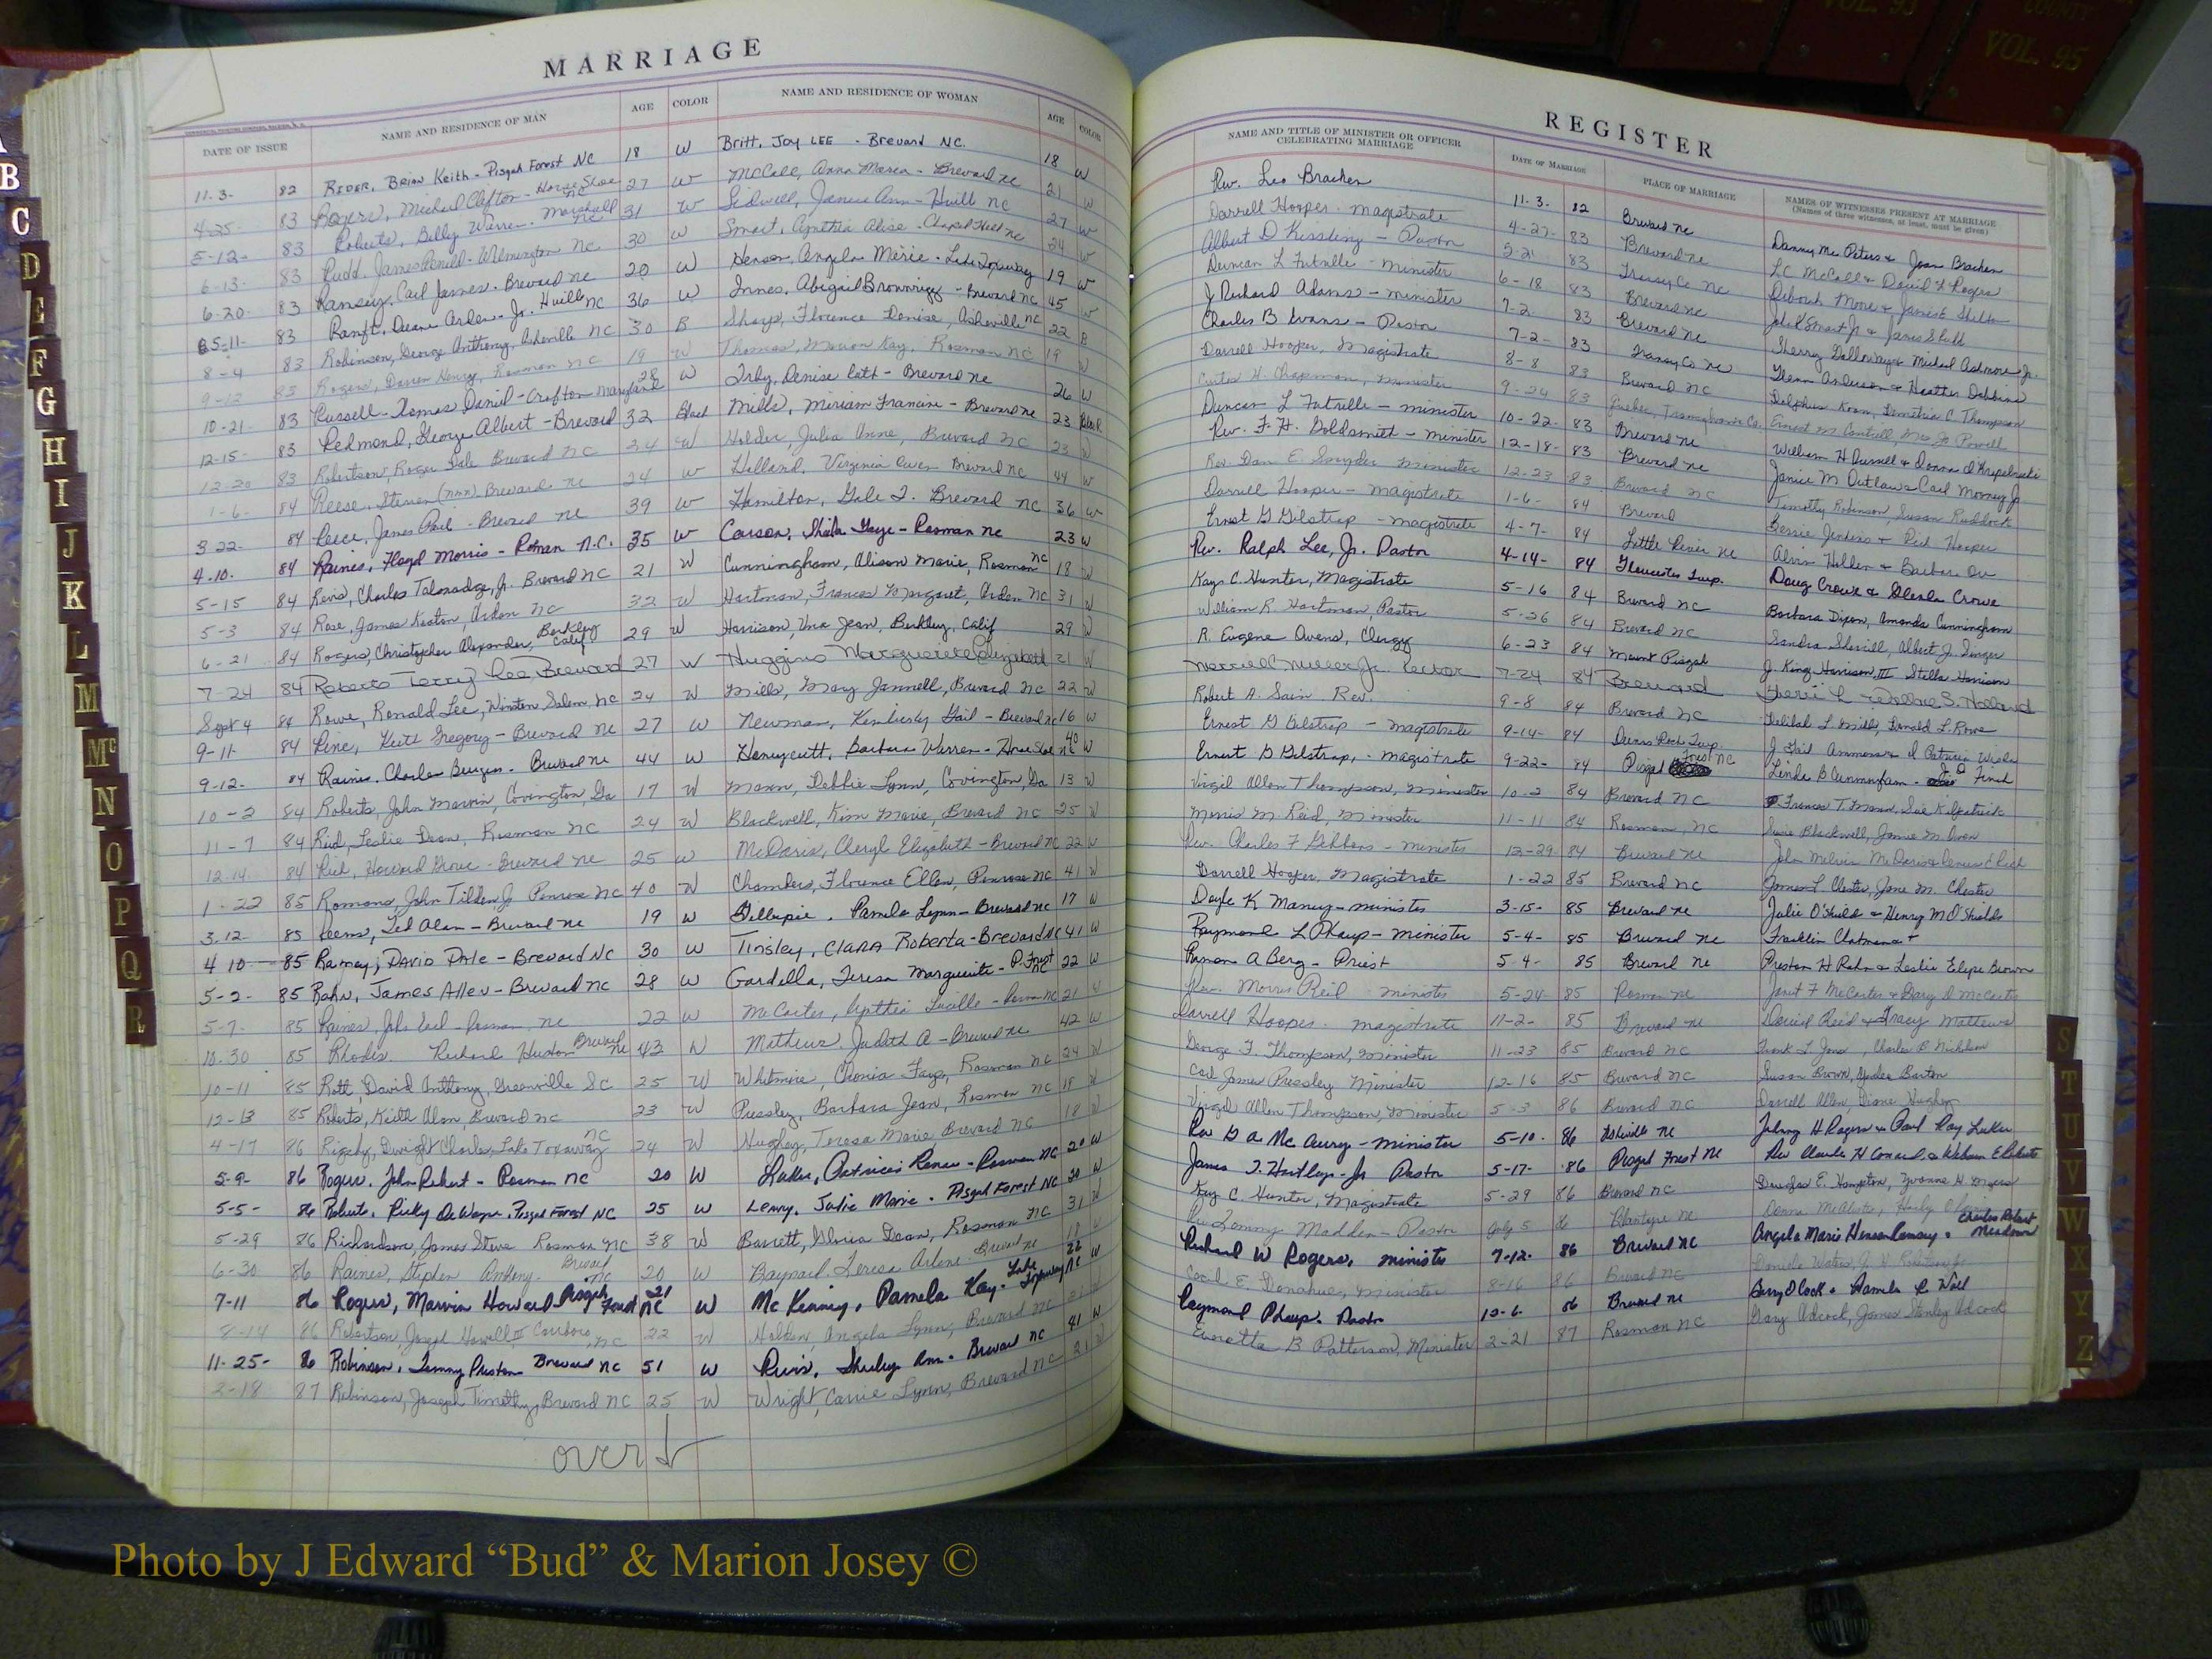 VOL. 93
COUNTY
VOL. 95
MARRIAGE
DATE OF ISSUE NAME AND RESIDENCE OF MAN AGE COLOR NAME AND RESIDENCE OF WOMAN AGE COLOR
11-3- 82 RIDER, Brian Keith - Pisgah Forest NC 18 W Britt, Joy LEE - Brevard NC. 18 W
4-25- 83 Rogers, Michael Clifton - Horse Shoe NC 27 W McCall, Anna Maria - Brevard NC 21 W
5-12- 83 Roberts, Billy Warren - Marshall NC 31 W Sidwell, Janice Ann - Hvill NC 27 W
6-13- 83 Rudd, James Daniel - Wilmington NC. 30 W Smart, Cynthia Alise - Chapel Hill NC 24 W
6-20- 83 Ramsey, Carl James - Brevard NC 20 W Henson, Angela Marie - Lake Toxaway 19 W
5-11- 83 Ranft, Deane Arden Jr. Hvill NC 36 W Innes, Abigail Brownrigg - Brevard NC 45 W
8-4 83 Robinson, George Anthony, Asheville NC 30 B Sharp, Florence Denise, Asheville NC 22 B
9-12 83 Rogers, Darren Henry, Rosman NC 19 W Thomas, Marion Kay, Rosman NC 19 W
10-21- 83 Russell - Thomas Daniel - Crofton Maryland 28 W Irby, Denise Cath - Brevard NC 26 W
12-15- 83 Redmond, George Albert - Brevard 32 Black Mills, Miriam Francine - Brevard NC 23 Black
12-20 83 Robertson, Roger Dale Brevard NC 24 W Holder, Julia Anne, Brevard NC 23 W
1-6- 84 Reese, Steven (NMN) Brevard NC 24 W Holland, Virginia Owen Brevard NC 44 W
3-22- 84 Reece, James Paul - Brevard NC 39 W Hamilton, Gale I. Brevard NC 36 W
4-10- 84 Raines, Floyd Morris - Rosman N.C. 35 W Carson, Shila Faye - Rosman NC 23 W
5-15 84 Revis, Charles Talmadge, Jr. Brevard NC 21 W Cunningham, Alison Marie, Rosman NC 18 W
5-3 84 Rose, James Keaton Arden NC 32 W Hartman, Frances Margaret, Arden NC 31 W
6-21 84 Rogers, Christopher Alexander, Berkley Calif 29 W Harrison, Una Jean, Berkley, Calif 29 W
7-24 84 Roberts Terry Lee, Brevard 27 W Huggins Marguerete Elizabeth 21 W
Sept 4 84 Rowe, Ronald Lee, Winston Salem, NC 24 W Mills, Mary Jannell, Brevard NC 22 W
9-11- 84 Rine, Keith Gregory - Brevard NC 27 W Newman, Kimberly Gail - Brevard NC 16 W
9-12- 84 Raines, Charles Burgess - Brevard NC 44 W Honeycutt, Barbara Warren - Horse Shoe NC 40 W
10-2 84 Roberts, John Marvin, Covington, Ga 17 W Mann, Debbie Lynn, Covington, Ga 13 W
11-7 84 Reid, Leslie Dean, Rosman NC 24 W Blackwell, Kim Marie, Brevard NC 25 W
12-14- 84 Rich, Howard - Brevard NC 25 W McDaris, Cheryl Elizabeth - Brevard NC 22 W
1-22 85 Romano, John Tilden Jr Penrose NC 40 W Chambers, Florence Ellen, Penrose NC 41 W
3-12- 85 Ted Alan - Brevard NC 19 W Gillespie, Pamela Lynn - Brevard NC 17 W
4 10- 85 Ramey, DAVID Dale - Brevard NC 30 W Tinsley, CLARA Roberta - Brevard NC 41 W
5-2- 85 Rahn, James Allen - Brevard NC 28 W Gardella, Teresa Marguerite - P. Forest NC 22 W
5-7- 85 Raines, John Earl - Rosman NC 22 W McCarter, Cynthia Lucille - NC 21 W
10-30 85 Rhodes, Richard Huston Brevard NC 43 W Mathews, Judith A - Brevard NC 42 W
10-11 85 Rott, David Anthony, Greenville SC 25 W Whitmire, Chonia Faye, Rosman NC 24 W
12-13 85 Roberts, Keith Alan Brevard NC 23 W Pressley, Barbara Jean, Rosman NC 18 W
4-17 86 Rigsby, Dwight Charles, Lake Toxaway NC 24 W Hughey, Teresa Marie, Brevard NC 18 W
5-9- 86 Rogers, John Robert - Rosman NC 20 W Luker, Patricia Renee - Rosman NC 20 W
5-5- 86 Roberts, Ricky DeWayne, Pisgah Forest NC 25 W Lewry, Julie Marie - Pisgah Forest NC 20 W
5-29 86 Richardson, James Steve Rosman NC 38 W Barrett, Gloria Dean, Rosman NC 31 W
6-30 86 Raines, Stephen Anthony - Brevard NC 20 W Baynard Teresa Arlene Brevard NC 18 W
7-11 86 Rogers, Marvin Howard Pisgah Forest NC 21 W McKinney, Pamela Kay - Lake Toxaway NC 22 W
8-14 86 Robertson, Joseph Howell II Carrboro, NC 22 W Holden, Angela Lynn, Brevard NC W
11-25- 86 Robinson, Tommy Preston Brevard NC 51 W Ruis, Shirley Ann - Brevard NC 41 W
2-18 87 Robinson, Joseph Timothy, Brevard NC 25 W Wright, Carrie Lynn, Brevard NC 21 W
over ↓
REGISTER
NAME AND TITLE OF MINISTER OR OFFICER CELEBRATING MARRIAGE DATE OF MARRIAGE PLACE OF MARRIAGE NAMES OF WITNESSES PRESENT AT MARRIAGE
(Names of three witnesses, at least, must be given)
Rev. Leo Bracken 11-3- 82 Brevard NC Danny Mc Peters & Joan Bracken
Darrell Hooper - magistrate 4-27- 83 Brevard NC L.C. McCall & David F Rogers
Albert D Kissling - Pastor 5-21 83 Transy Co NC Deborah Moore & Janice Shelton
Duncan L Futrelle - minister 6-18 83 Brevard NC John K Smart Jr & James Stull
J Richard Adams - minister 7-2- 83 Brevard NC Sherry Galloway & Michael Ashmore Jr.
Charles B Evans - Pastor 7-2- 83 Transy Co NC Glenn Anderson & Heather Dobbins
Darrell Hooper, Magistrate 8-8 83 Brevard NC Delphus Koon, Demetria C. Thompson
Curtis H. Chapman, Minister 9-24 83 Quebec, Transylvania Co. Ernest M Cantrell, Mrs Jo Powell
Duncan L Futrelle - minister 10-22- 83 Brevard NC William H Russell & Donna
Rev. F. H. Goldsmith - minister 12-18- 83 Brevard NC Janice M Outlaw & Carl Mooney Jr
Rev. Dan E. Snyder Minister 12-23 83 Brevard NC Timothy Robinson, Susan Ruddock
Darrell Hooper - magistrate 1-6- 84 Brevard Bessie Jenkins & Rick Hooper
Ernest G Gilstrap - magistrate 4-7- 84 Little River NC Alvin Holden & Barbara Orr
Rev. Ralph Lee, Jr. Pastor 4-14- 84 Gloucester Twp. Doug Crowe & Glenda Crowe
Kaye C. Hunter, Magistrate 5-16 84 Brevard NC Barbara Dixon, Amanda Cunningham
William R. Hartman, Pastor 5-26 84 Brevard NC Sandra Sherrill, Albert J. Singer
R. Eugene Owens, Clergy 6-23 84 Mount Pisgah J. King Harrison III Stella Harrison
Merrill C Miller Jr. Rector 7-24 84 Brevard Sherri L & Wallace S. Holland
Robert A. Sain Rev. 9-8 84 Brevard NC Delilah L Mills, Donald L. Rowe
Ernest G Gilstrap - magistrate 9-14- 84 Dunns Rock Twp. J. Gail Ammons & Patricia
Ernest G Gilstrap, - magistrate 9-22- 84 Pisgah Forest NC Linda B Cunningham - Jo Finch
Virgil Allen Thompson, Minister 10-2 84 Brevard NC Frances T. Mann, Sue Kilpatrick
Morris M Reid, Minister 11-11 84 Rosman, NC Susie Blackwell, Jamie M Owen
Rev. Charles F Gibbons - minister 12-29- 84 Brevard NC John Melvin McDaris & Rich
Darrell Hooper, Magistrate 1-22 85 Brevard NC James L Chester, Jane M. Chester
Doyle K Maney - minister 3-15- 85 Brevard NC Julie O'Shields & Henry M O'Shields
Raymond L Phaup - minister 5-4- 85 Brevard NC Franklin Chatman &
Ramon A Berg - Priest 5-4- 85 Brevard NC Preston H Rahn & Leslie Brown
Rev. Morris Reid minister 5-24- 85 Rosman NC Janet F McCarter & Gary D McCarter
Darrell Hooper - magistrate 11-2- 85 Brevard NC David Reid & Tracy Mathews
George F. Thompson, Minister 11-23 85 Brevard NC Frank L Jones, Charles B Nicholson
Carl James Pressley Minister 12-16 85 Brevard NC Susan Brown, Barton
Virgil Allen Thompson, Minister 5-3 86 Brevard NC Darrell Allen, Diane Hughey
Rev G A McAuray - minister 5-10- 86 Asheville NC Johnny H Rogers & Paul Ray Luker
James T. Hartley - Jr Pastor 5-17- 86 Pisgah Forest NC Rev Charles H Conard & E Roberts
Kay C. Hunter, Magistrate 5-29 86 Brevard NC Douglas E. Hampton, Yvonne H. Myers
Rev Tommy Madden - Pastor July 5 86 Blantyre NC Donna McAlister,
Richard W Rogers, minister 7-12- 86 Brevard NC Angela Marie Henson Ramsey & Charles Robert Meadows
Cecil E. Donahue, Minister 8-16 86 Brevard NC
Raymond Phaup, Pastor 12-6 86 Brevard NC Garry D Cook & Pamela R Will
Everette B Patterson, Minister 2-21 87 Rosman NC Gary Adcock, James Stanley Adcock
B
C
D
E
F
G
H
I
J
K
L
M
Mc
N
O
P
Q
R
S
T
U
V
W
X
Y
Z
Photo by J Edward “Bud” & Marion Josey ©